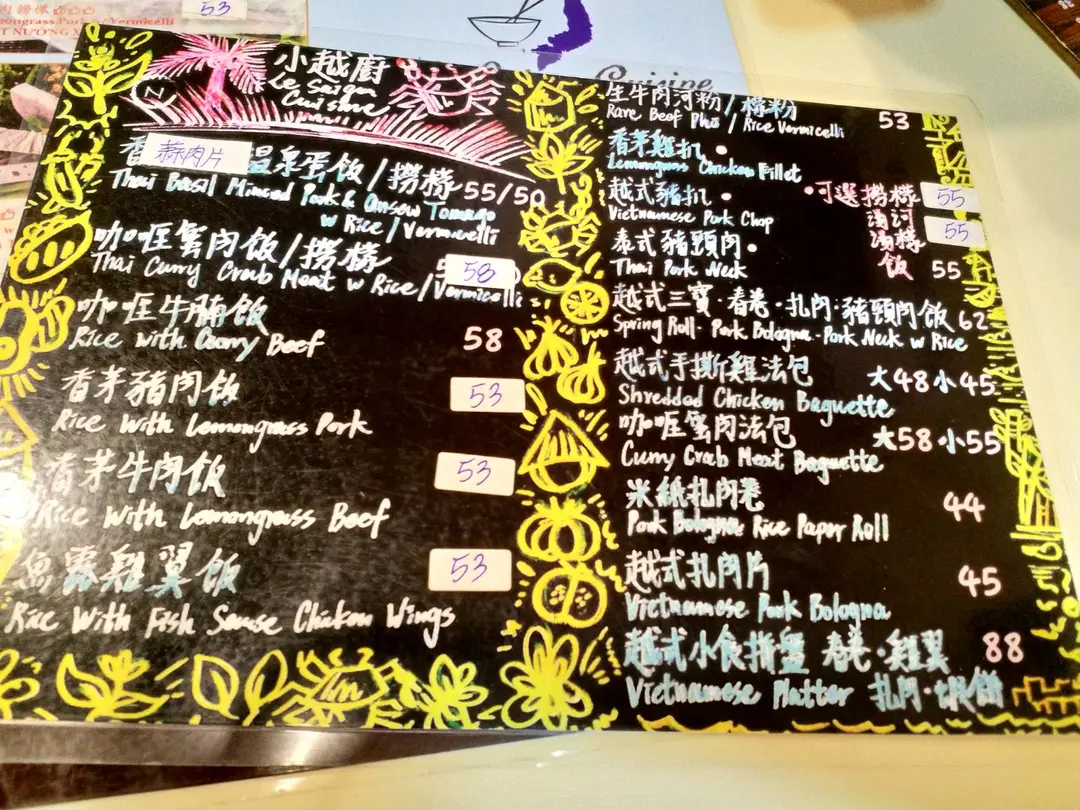 53
Vermicelli
T NƯỚNG
Cuisine
小越廚
Le Saigon
Cuisine
香 蒜肉片 溫泉蛋飯/撈檬 55/50
Thai Basil Minced Pork & Onsen Tamago
w Rice/Vermicelli
咖喱蟹肉飯/撈檬 58
Thai Curry Crab Meat w Rice/Vermicelli
咖喱牛腩飯
Rice with Curry Beef 58
香茅豬肉飯 53
Rice With Lemongrass Pork
香茅牛肉飯 53
Rice With Lemongrass Beef
魚露雞翼飯 53
Rice With Fish Sauce Chicken Wings
生牛肉河粉/撈粉 53
Rare Beef Phü / Rice Vermicelli
香茅雞扒•
Lemongrass Chicken Fillet
越式豬扒• •可選撈檬 55
Vietnamese Pork Chop 湯河
湯檬 55
泰式豬頸肉• 飯 55
Thai Pork Neck
越式三寶·春卷·扎肉·豬頸肉飯 62
Spring Roll- Pork Bologna-Pork Neck w Rice
越式手撕雞法包 大48小45
Shredded Chicken Baguette
咖喱蟹肉法包 大58小55
Curry Crab Meat Baguette
米紙扎肉卷 44
Pork Bologna Rice Paper Roll
越式扎肉片 45
Vietnamese Pork Bologna
越式小食拼盤 春卷·雞翼 88
Vietnamese Platter 扎肉·蝦餅